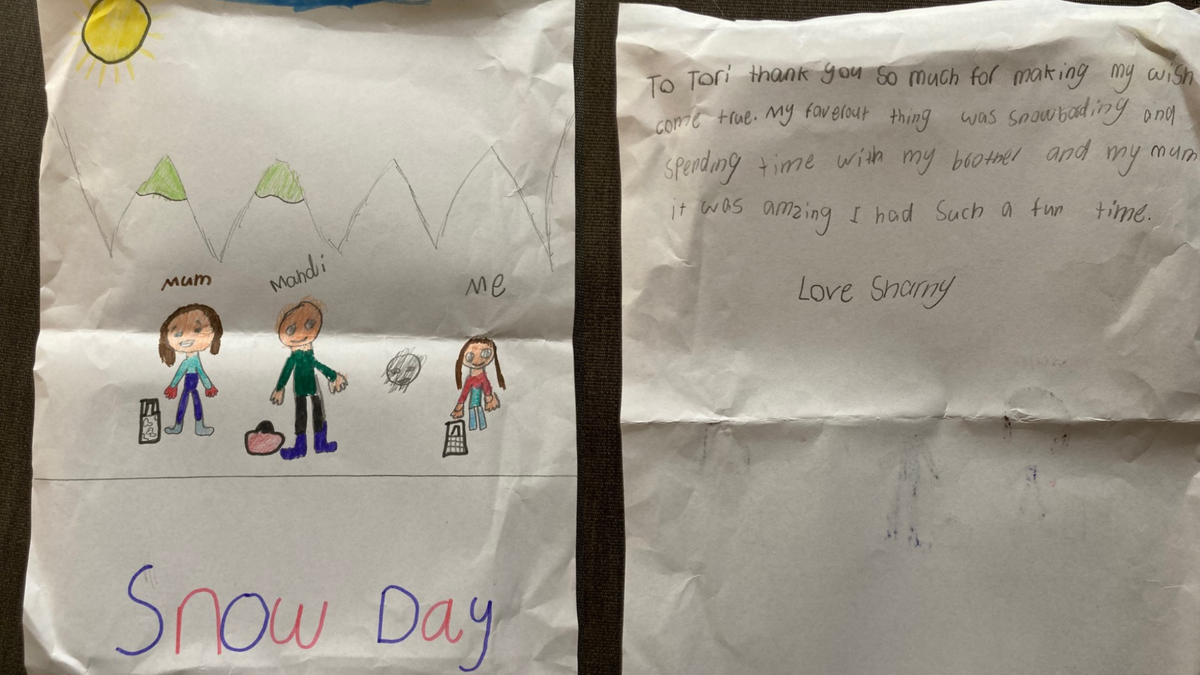 Mum
Mandi
Me
Snow Day
To Tori thank you so much for making my wish
come true. My faverout thing was snowboading and
spending time with my brother and my mum
it was amzing I had such a fun time.
Love Sharny